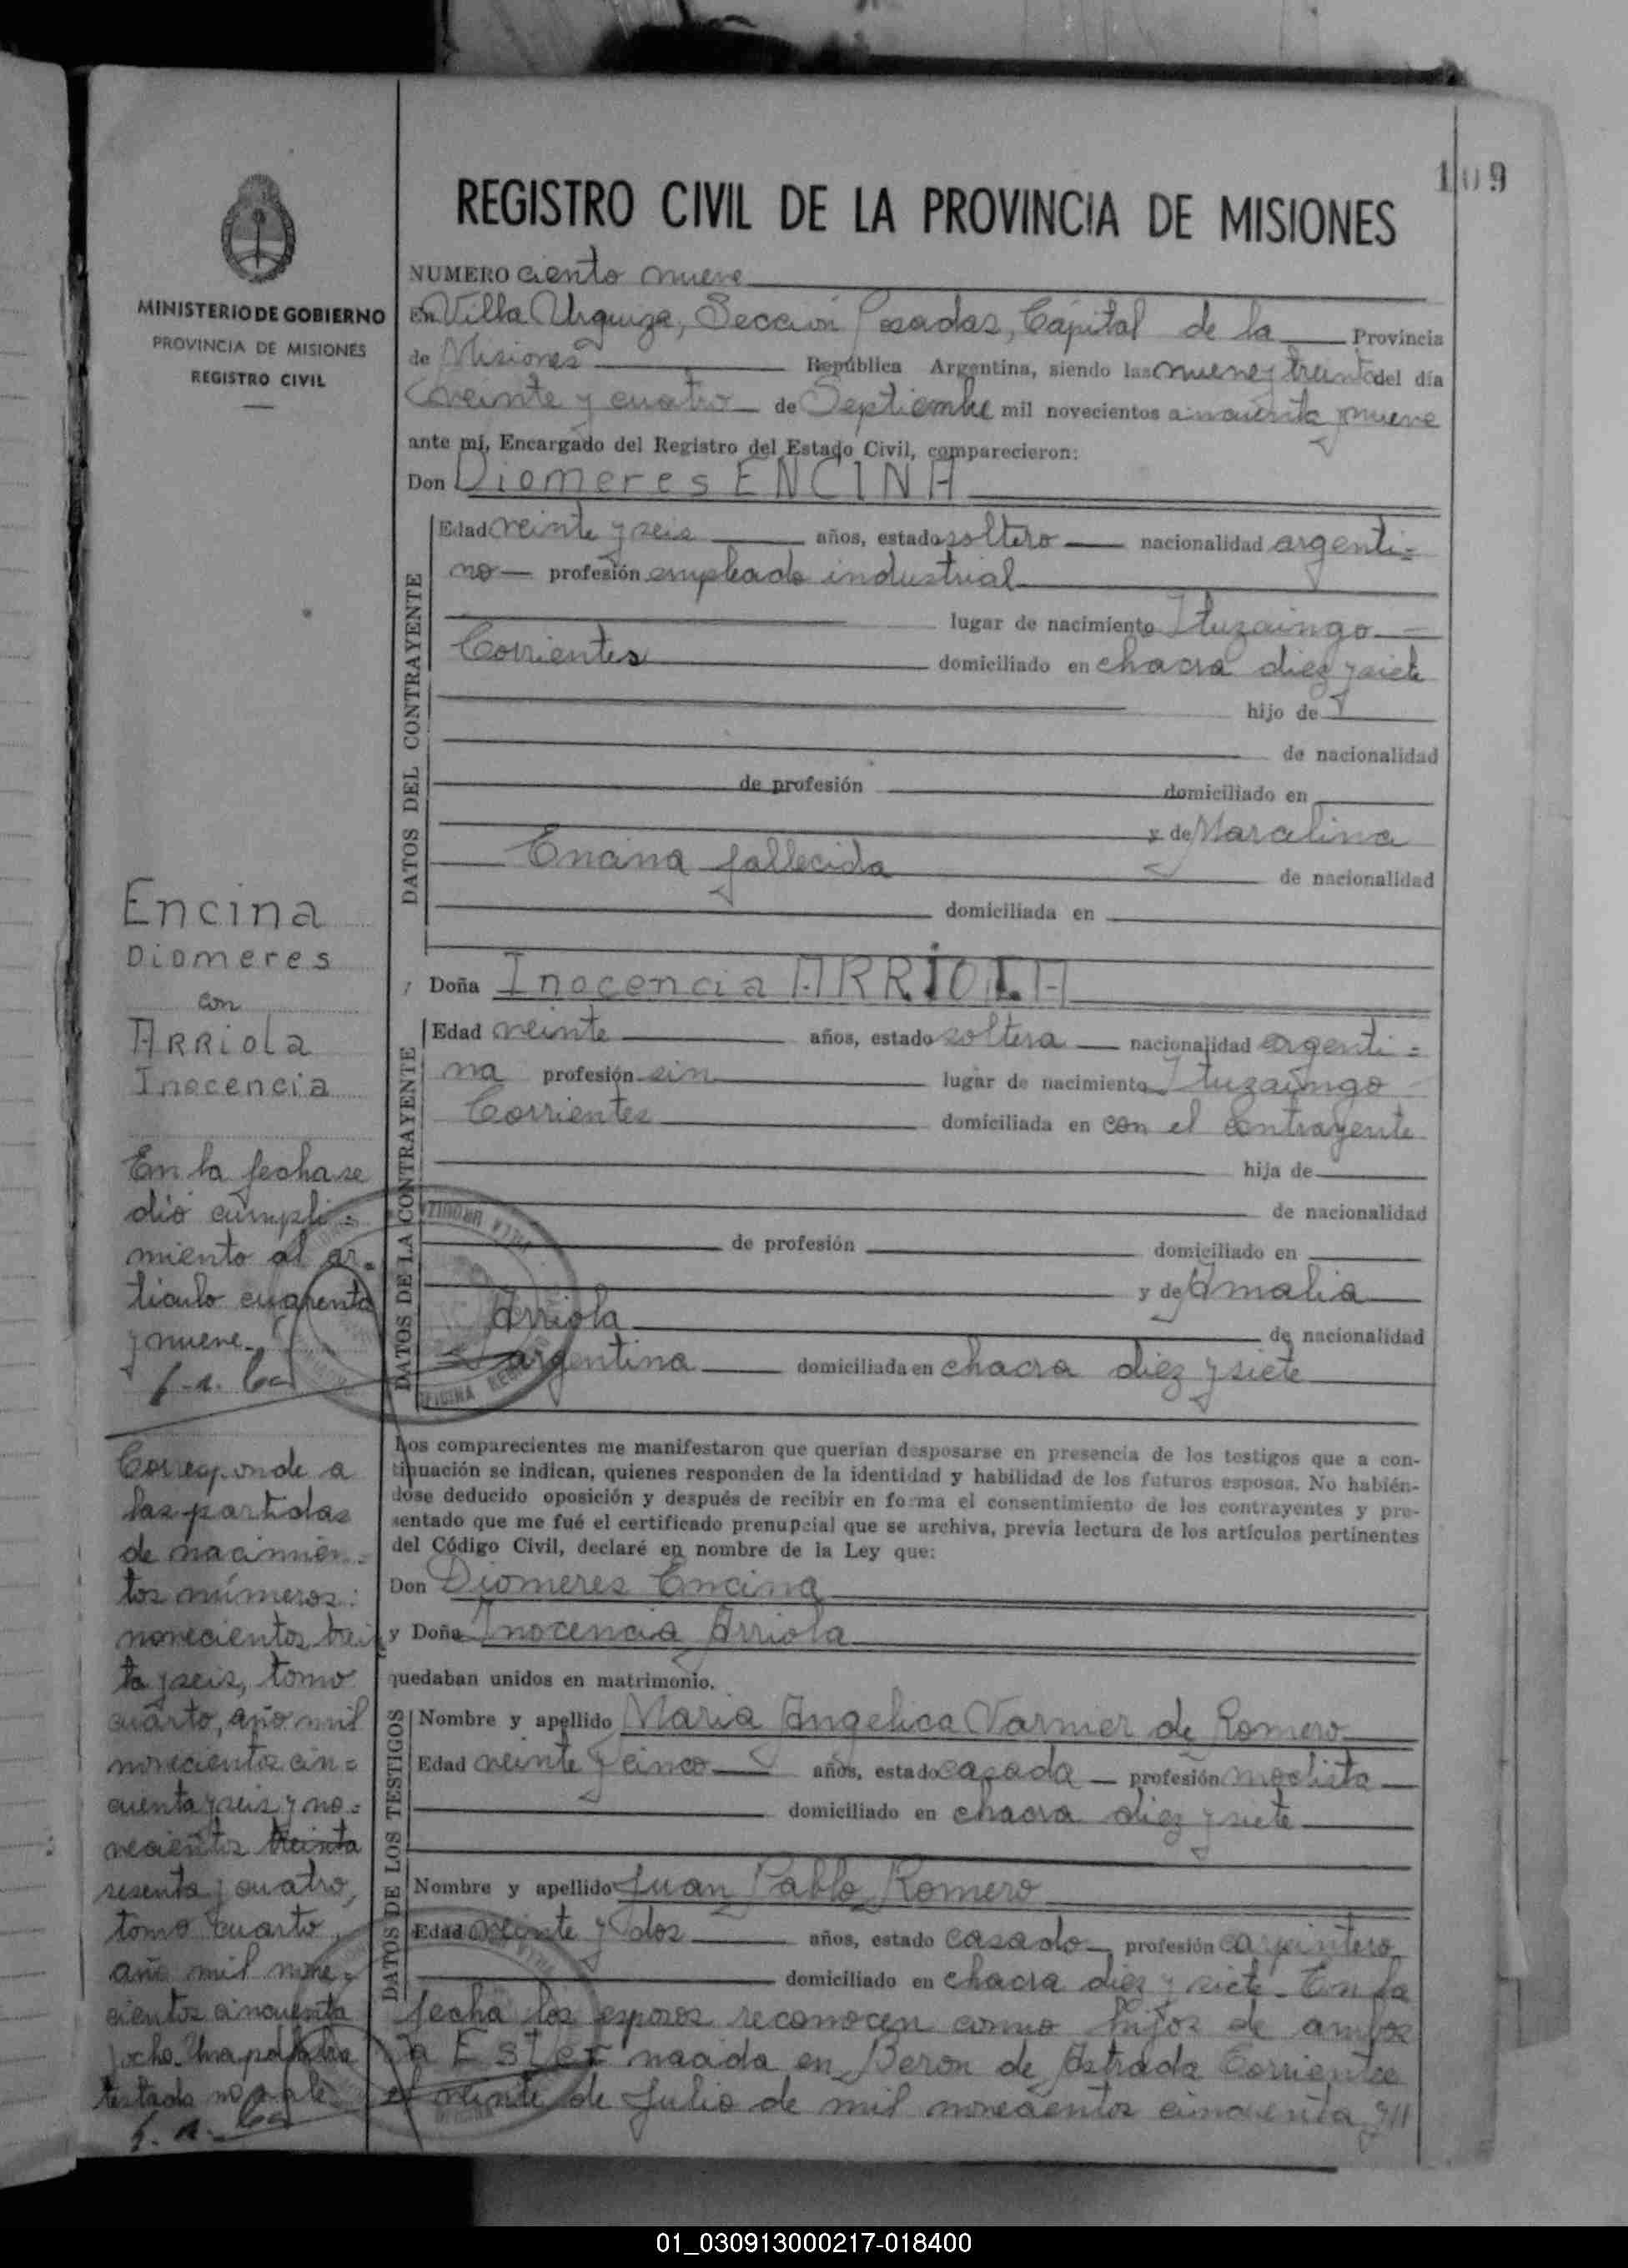 109
REGISTRO CIVIL DE LA PROVINCIA DE MISIONES
MINISTERIO DE GOBIERNO
PROVINCIA DE MISIONES
REGISTRO CIVIL
NUMERO ciento nueve
En Villa Urquiza, Sección Posadas, Cápital de la Provincia
de Misiones República Argentina, siendo las nueve y treinta del día
veinte y cuatro de Septiembre mil novecientos cincuenta y nueve
ante mí, Encargado del Registro del Estado Civil, comparecieron:
Don Diomeres ENCINA
DATOS DEL CONTRAYENTE
Edad veinte y seis años, estado soltero nacionalidad argenti=
no profesión empleado industrial
lugar de nacimiento Ituzaingo
Corrientes domiciliado en chacra diez y siete
hijo de
de nacionalidad
de profesión domiciliado en
y de Marcelina
Encina fallecida de nacionalidad
domiciliada en
Doña Inocencia ARRIOLA
DATOS DE LA CONTRAYENTE
Edad veinte años, estado soltera nacionalidad argenti=
na profesión sin lugar de nacimiento Ituzaingo
Corrientes domiciliada en con el contrayente
hija de
de nacionalidad
de profesión domiciliado en
y de Amalia
Arriola de nacionalidad
argentina domiciliada en chacra diez y siete
Los comparecientes me manifestaron que querían desposarse en presencia de los testigos que a con-
tinuación se indican, quienes responden de la identidad y habilidad de los futuros esposos. No habién-
dose deducido oposición y después de recibir en forma el consentimiento de los contrayentes y pre-
sentado que me fué el certificado prenupcial que se archiva, previa lectura de los artículos pertinentes
del Código Civil, declaré en nombre de la Ley que:
Don Diomeres Encina
y Doña Inocencia Arriola
quedaban unidos en matrimonio.
DATOS DE LOS TESTIGOS
Nombre y apellido Maria Angelica Varnier de Romero
Edad veinte y cinco años, estado casada profesión modista
domiciliado en chacra diez y siete
Nombre y apellido Juan Pablo Romero
Edad veinte y dos años, estado casado profesión carpintero
domiciliado en chacra diez y siete. En la
fecha los esposos reconocen como hijos de ambos
a Ester nacida en Beron de Astrada Corrientes
el veinte de Julio de mil novecientos cincuenta y//
Encina
Diomeres
con
Arriola
Inocencia
En la fecha se
dió cumpli=
miento al ar=
tículo cuarenta
y nueve.
Corresponde a
las partidas
de nacimien=
tos números:
novecientos trein
ta y seis, tomo
cuarto, año mil
novecientos cin=
cuenta y seis y no=
vecientos treinta
sesenta y cuatro,
tomo cuarto,
año mil nove=
cientos cincuenta
y ocho. Una palabra
testada no vale
01_030913000217-018400